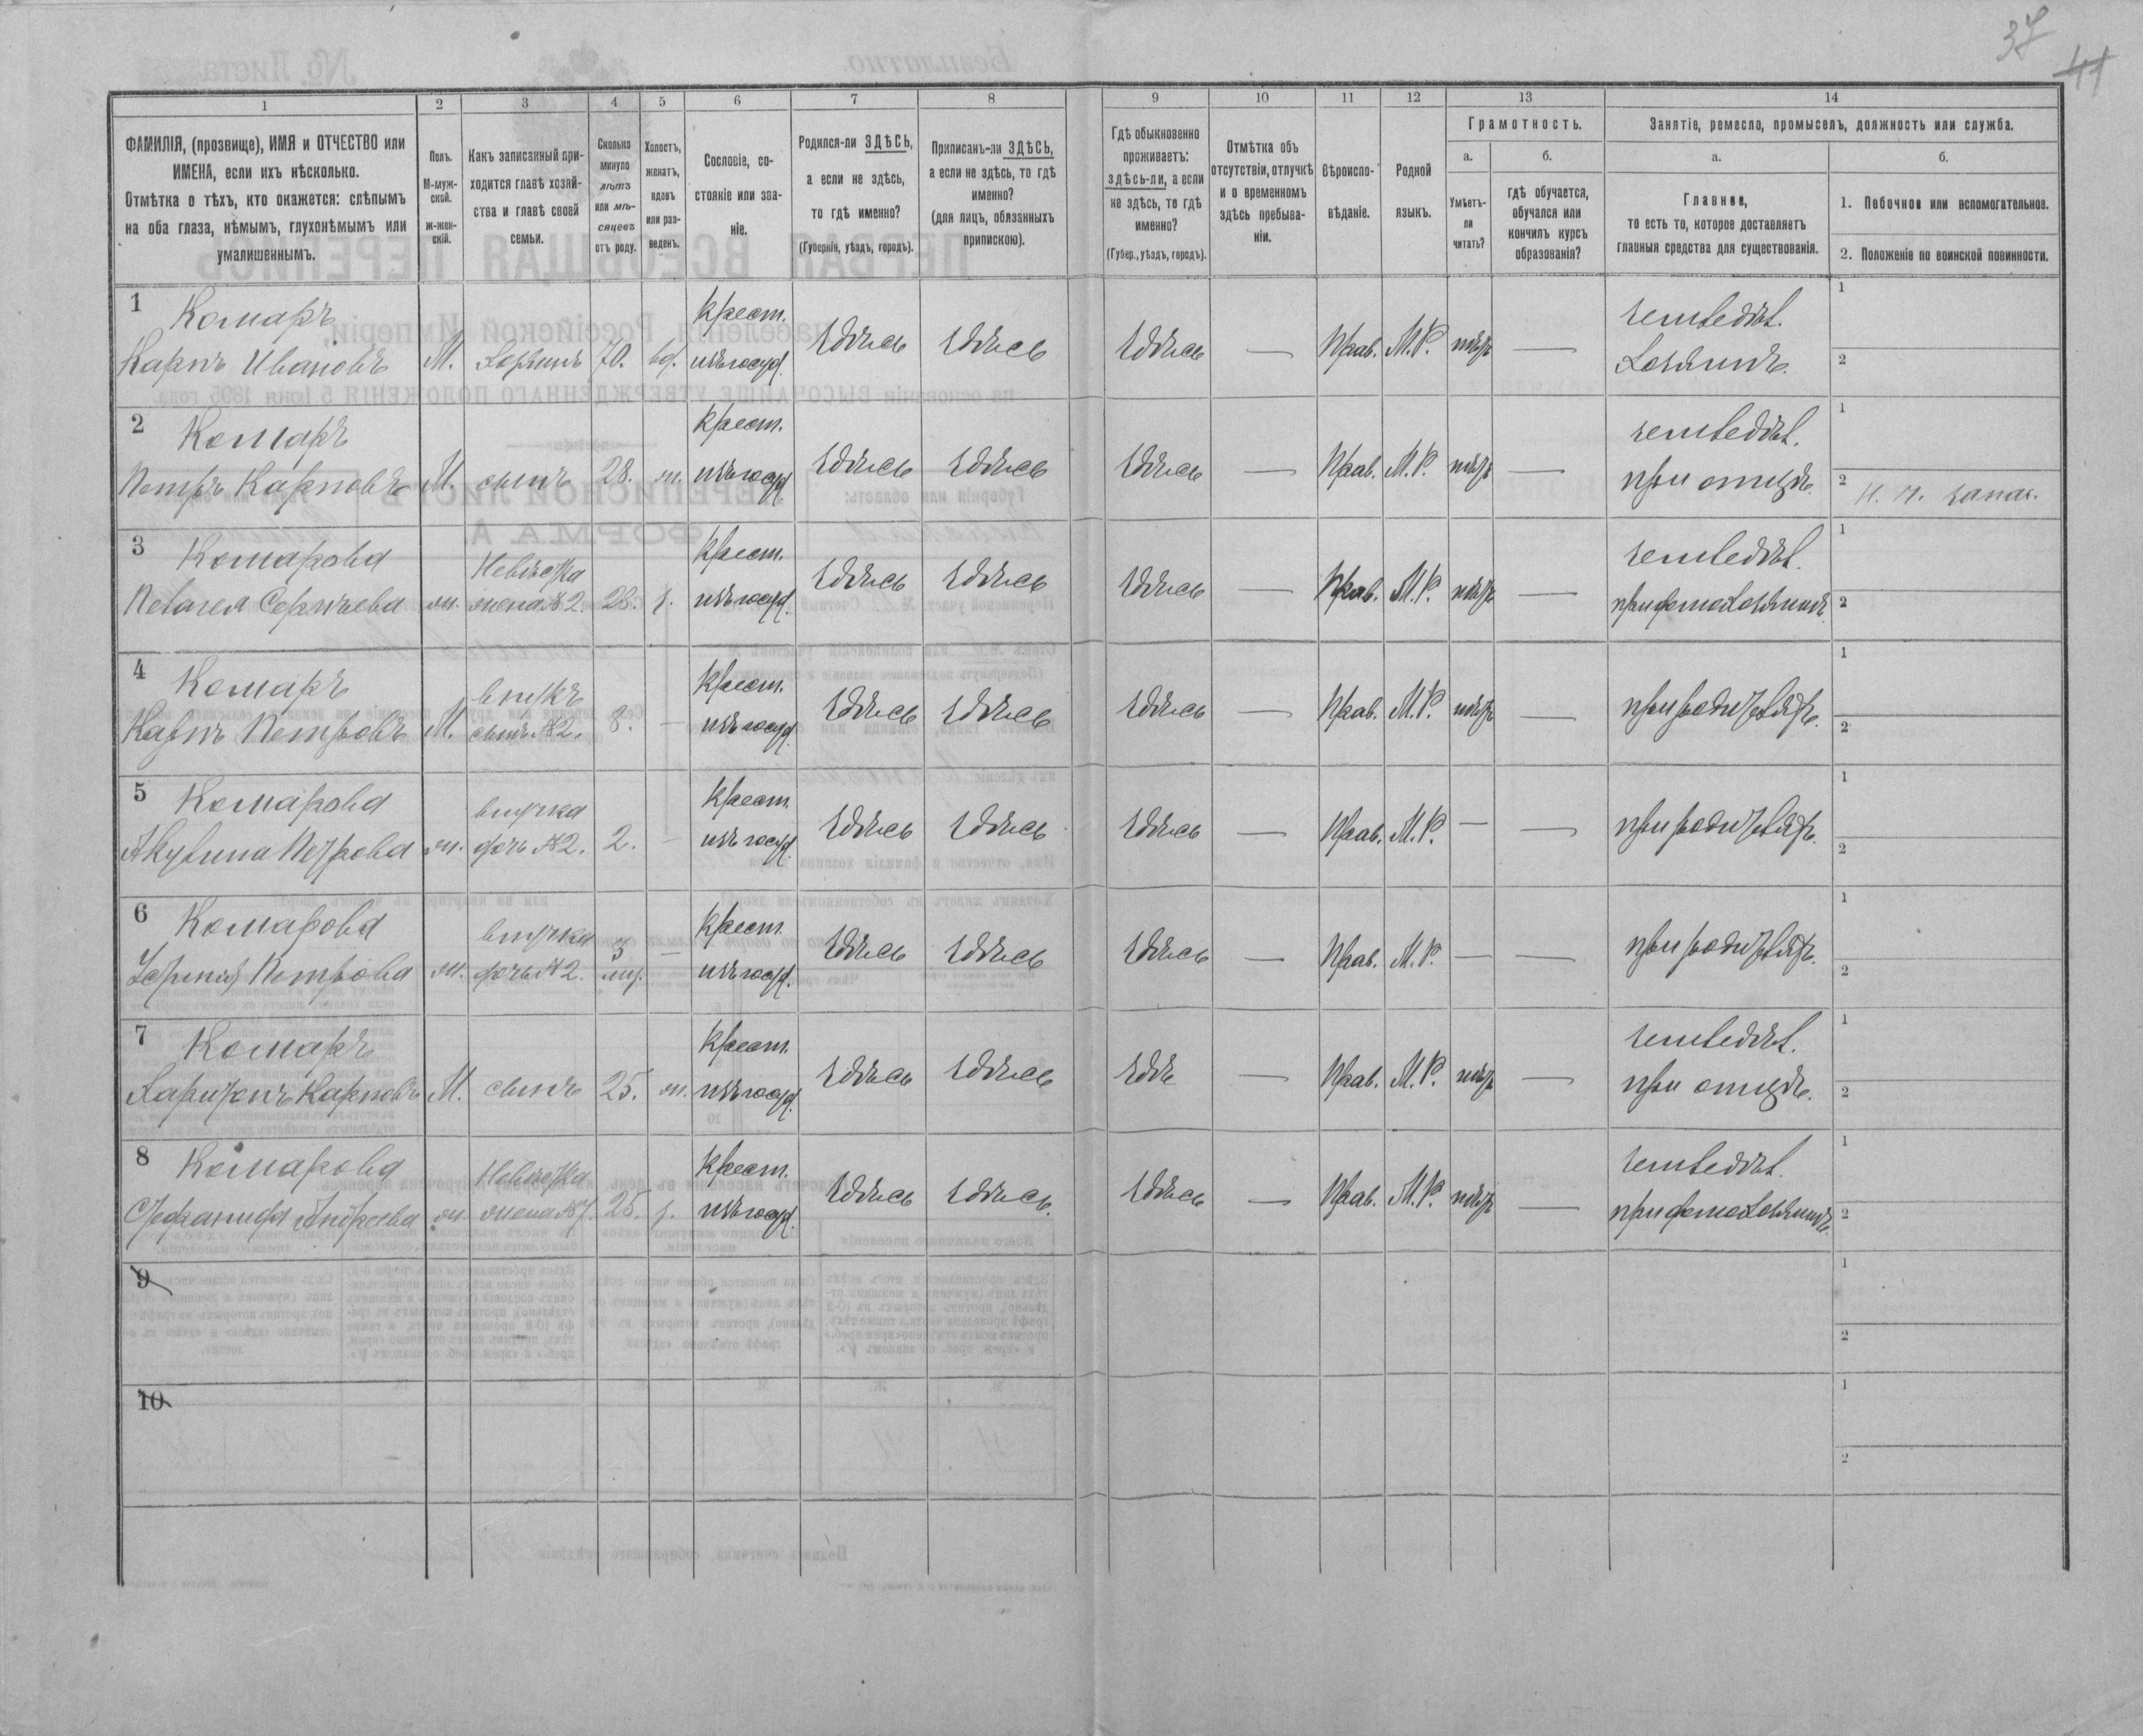 37
41
1 2 3 4 5 6 7 8 9 10 11 12 13 14
ФАМИЛІЯ, (прозвище), ИМЯ и ОТЧЕСТВО или
ИМЕНА, если ихъ нѣсколько.
Отмѣтка о тѣхъ, кто окажется: слѣпымъ
на оба глаза, нѣмымъ, глухонѣмымъ или
умалишеннымъ.
Полъ.
М-муж-
ской.
ж-жен-
скій.
Какъ записанный при-
ходится главѣ хозяй-
ства и главѣ своей
семьи.
Сколько
минуло
лѣтъ
или мѣ-
сяцевъ
отъ роду.
Холостъ,
женатъ,
вдовъ
или раз-
веденъ.
Сословіе, со-
стояніе или зва-
ніе.
Родился-ли ЗДѢСЬ,
а если не здѣсь,
то гдѣ именно?
(Губернія, уѣздъ, городъ).
Приписанъ-ли ЗДѢСЬ,
а если не здѣсь, то гдѣ
именно?
(для лицъ, обязанныхъ
припискою).
Гдѣ обыкновенно
проживаетъ:
здѣсь-ли, а если
не здѣсь, то гдѣ
именно?
(Губер., уѣздъ, городъ).
Отмѣтка объ
отсутствіи, отлучкѣ
и о временномъ
здѣсь пребыва-
ніи.
Вѣроиспо-
вѣданіе.
Родной
языкъ.
Грамотность.
а.
Умѣетъ-
ли
читать?
б.
гдѣ обучается,
обучался или
кончилъ курсъ
образованія?
Занятіе, ремесло, промыселъ, должность или служба.
а.
Главное,
то есть то, которое доставляетъ
главныя средства для существованія.
б.
1. Побочное или вспомогательное.
2. Положеніе по воинской повинности.
1 Комаръ крест. земледѣл. 1
Карпъ Ивановъ М. Хозяинъ 70. вд. изъ госуд. здѣсь здѣсь здѣсь — Прав. М.Р. нѣтъ — Хозяинъ. 2
2 Комаръ крест. земледѣл. 1
Петръ Карповъ М. сынъ 28. ж. изъ госуд. здѣсь здѣсь здѣсь — Прав. М.Р. нѣтъ — при отцѣ. 2 Н. ч. запас.
3 Комарова Невѣстка крест. земледѣл. 1
Пелагея Сергѣева ж. жена №2. 28. з. изъ госуд. здѣсь здѣсь здѣсь — Прав. М.Р. нѣтъ — 2
4 Комаръ внукъ крест. 1
Карпъ Петровъ М. сынъ №2. 8. — изъ госуд. здѣсь здѣсь здѣсь — Прав. М.Р. нѣтъ — при родителѣ. 2
5 Комарова внучка крест. 1
Акулина Петрова ж. дочь №2. 2. — изъ госуд. здѣсь здѣсь здѣсь — Прав. М.Р. — — при родителѣ. 2
6 Комарова внучка 3 крест. 1
Петрова ж. дочь №2. мц. — изъ госуд. здѣсь здѣсь здѣсь — Прав. М.Р. — — при родителѣ. 2
7 Комаръ крест. земледѣл. 1
Харитонъ Карповъ М. сынъ 25. ж. изъ госуд. здѣсь здѣсь здѣ — Прав. М.Р. нѣтъ — при отцѣ. 2
8 Комарова Невѣстка крест. земледѣл. 1
Стефанида Андреева ж. жена №7. 25. з. изъ госуд. здѣсь здѣсь. здѣсь — Прав. М.Р. нѣтъ — 2
9 1
2
10 1
2